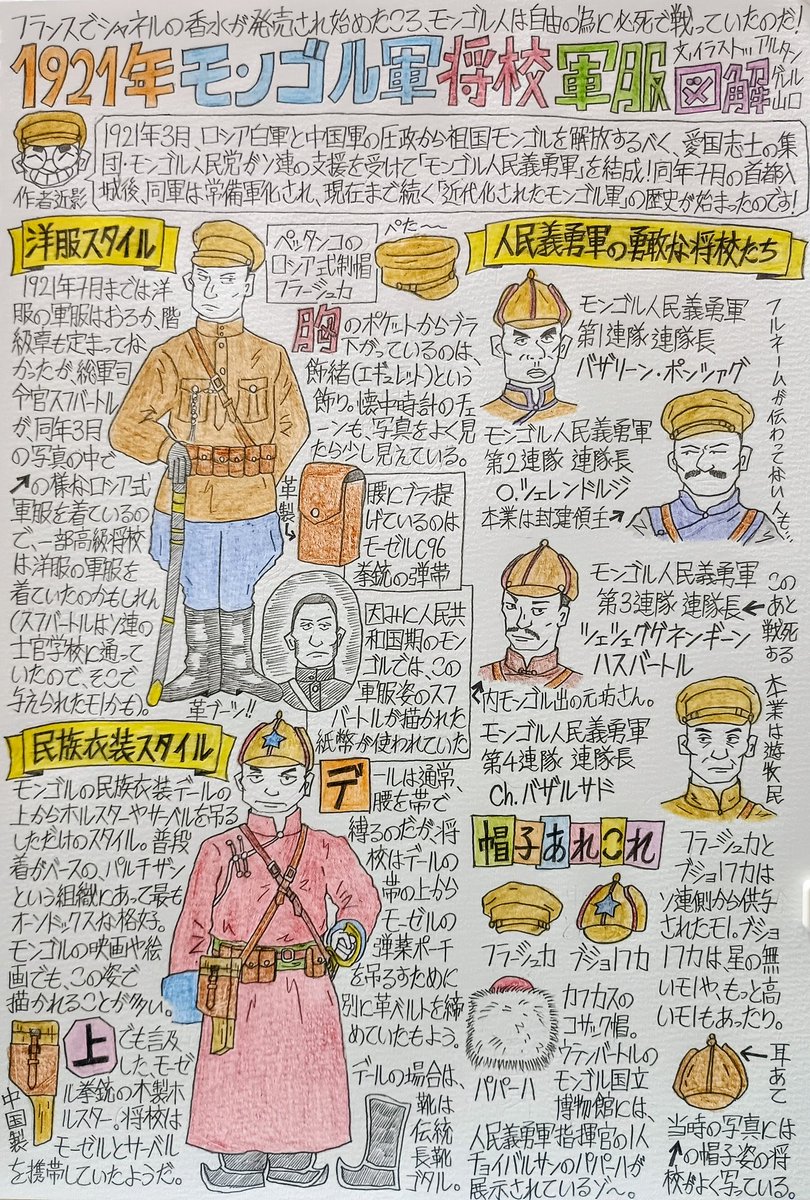 フランスでシャネルの香水が発売され始めたころ、モンゴル人は自由の為に必死で戦っていたのだ!
1921年モンゴル軍将校軍服図解
文,イラスト,アルタン
ゲレル
山口
作者近影
1921年3月、ロシア白軍と中国軍の圧政から祖国モンゴルを解放するべく、愛国志士の集
団・モンゴル人民党がソ連の支援を受けて「モンゴル人民義勇軍」を結成!同年7月の首都入
城後、同軍は常備軍化され、現在まで続く「近代化されたモンゴル軍」の歴史が始まったのです!
洋服スタイル
1921年7月までは洋
服の軍服はおろか、階
級章も定まってな
かったが、総軍司
令官スフバートル
が同年3月
の写真の中で
↗の様なロシア式
軍服を着ているの
で、一部高級将校
は洋服の軍服を
着ていたのかもしれん
(スフバートルはソ連の
士官学校に通っ
ていたので、そこで
与えられたモノかも)。
革ブーツ!!
ペッタンコの
ロシア式制帽
フラージュカ
ぺた〜〜
胸のポケットからブラ
下がっているのは、
飾緒(エギュレット)という
飾り。懐中時計のチェ
ーンも、写真をよく見
たら少し見えている。
革製
腰にブラ提
げているのは
モーゼルC96
拳銃の弾帯
因みに人民共
和国期のモン
ゴルでは、この
軍服姿のスフ
バートルが描かれた
紙幣が使われていた
人民義勇軍の勇敢な将校たち
モンゴル人民義勇軍
第1連隊 連隊長
バザリーン・ポンツァグ
フルネームが伝わってない人も…
モンゴル人民義勇軍
第2連隊 連隊長
O.ツェレンドルジ
本業は封建領主↗
モンゴル人民義勇軍
第3連隊 連隊長←
ツェジェグゲネンギーン
ハスバートル
このあと戦死する
↖内モンゴル出の元坊さん。
モンゴル人民義勇軍
第4連隊 連隊長
Ch.バザルサド
本業は遊牧民
民族衣装スタイル
モンゴルの民族衣装デールの
上からホルスターやサーベルを吊る
しただけのスタイル。普段
着がベースの、パルチザン
という組織にあって最も
オーソドックスな格好。
モンゴルの映画や絵
画でも、この姿で
描かれることが多い。
デールは通常、
腰を帯で
縛るのだが、将
校はデールの
帯の上から
モーゼルの
弾薬ポーチ
を吊るすために
別に革ベルトを締
めていたもよう。
上でも言及
した、モーゼ
ル拳銃の木製ホ
ルスター。将校は
モーゼルとサーベル
を携帯していたようだ。
中国製
デールの場合は、
靴は
伝統
長靴
ゴタル。
帽子あれこれ
フラージュカ
ブジョノフカ
フラージュカと
ブジョノフカは
ソ連側から供与
されたモノ。ブジョ
ノフカは、星の無
いモノや、もっと高
いモノもあったり。
パパーハ
カフカスの
コサック帽。
ウランバートルの
モンゴル国立
博物館には、
人民義勇軍指揮官の1人
チョイバルサンのパパーハが
展示されているゾ〜。
←耳あて
当時の写真には
↑の帽子姿の将
校がよく写っている。